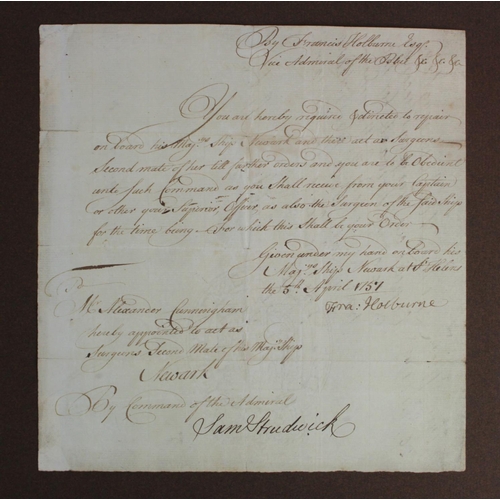 By Francis Holburne Esqr.
Vice Admiral of the Blue &c &c &c
You are hereby required & directed to repair
on board his Majtys. Ship Newark and there act as Surgeons
Second mate of her till further orders and you are to be Obedient
unto such Command as you Shall receive from your Captain
or other your Superior Officer as also the Surgeon of the said Ship
for the time being For which this Shall be your Order
Given under my hand on board his
Majtys. Ship Newark at St. Helens
the 5th. April 1757
Fra: Holburne
Mr. Alexander Cunningham
hereby appointed to act as
Surgeons Second Mate of his Majtys. Ship
Newark
By Command of the Admiral
Sam Strudwick